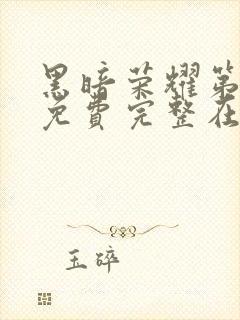 黑暗荣耀第
免费完整在
玉碎